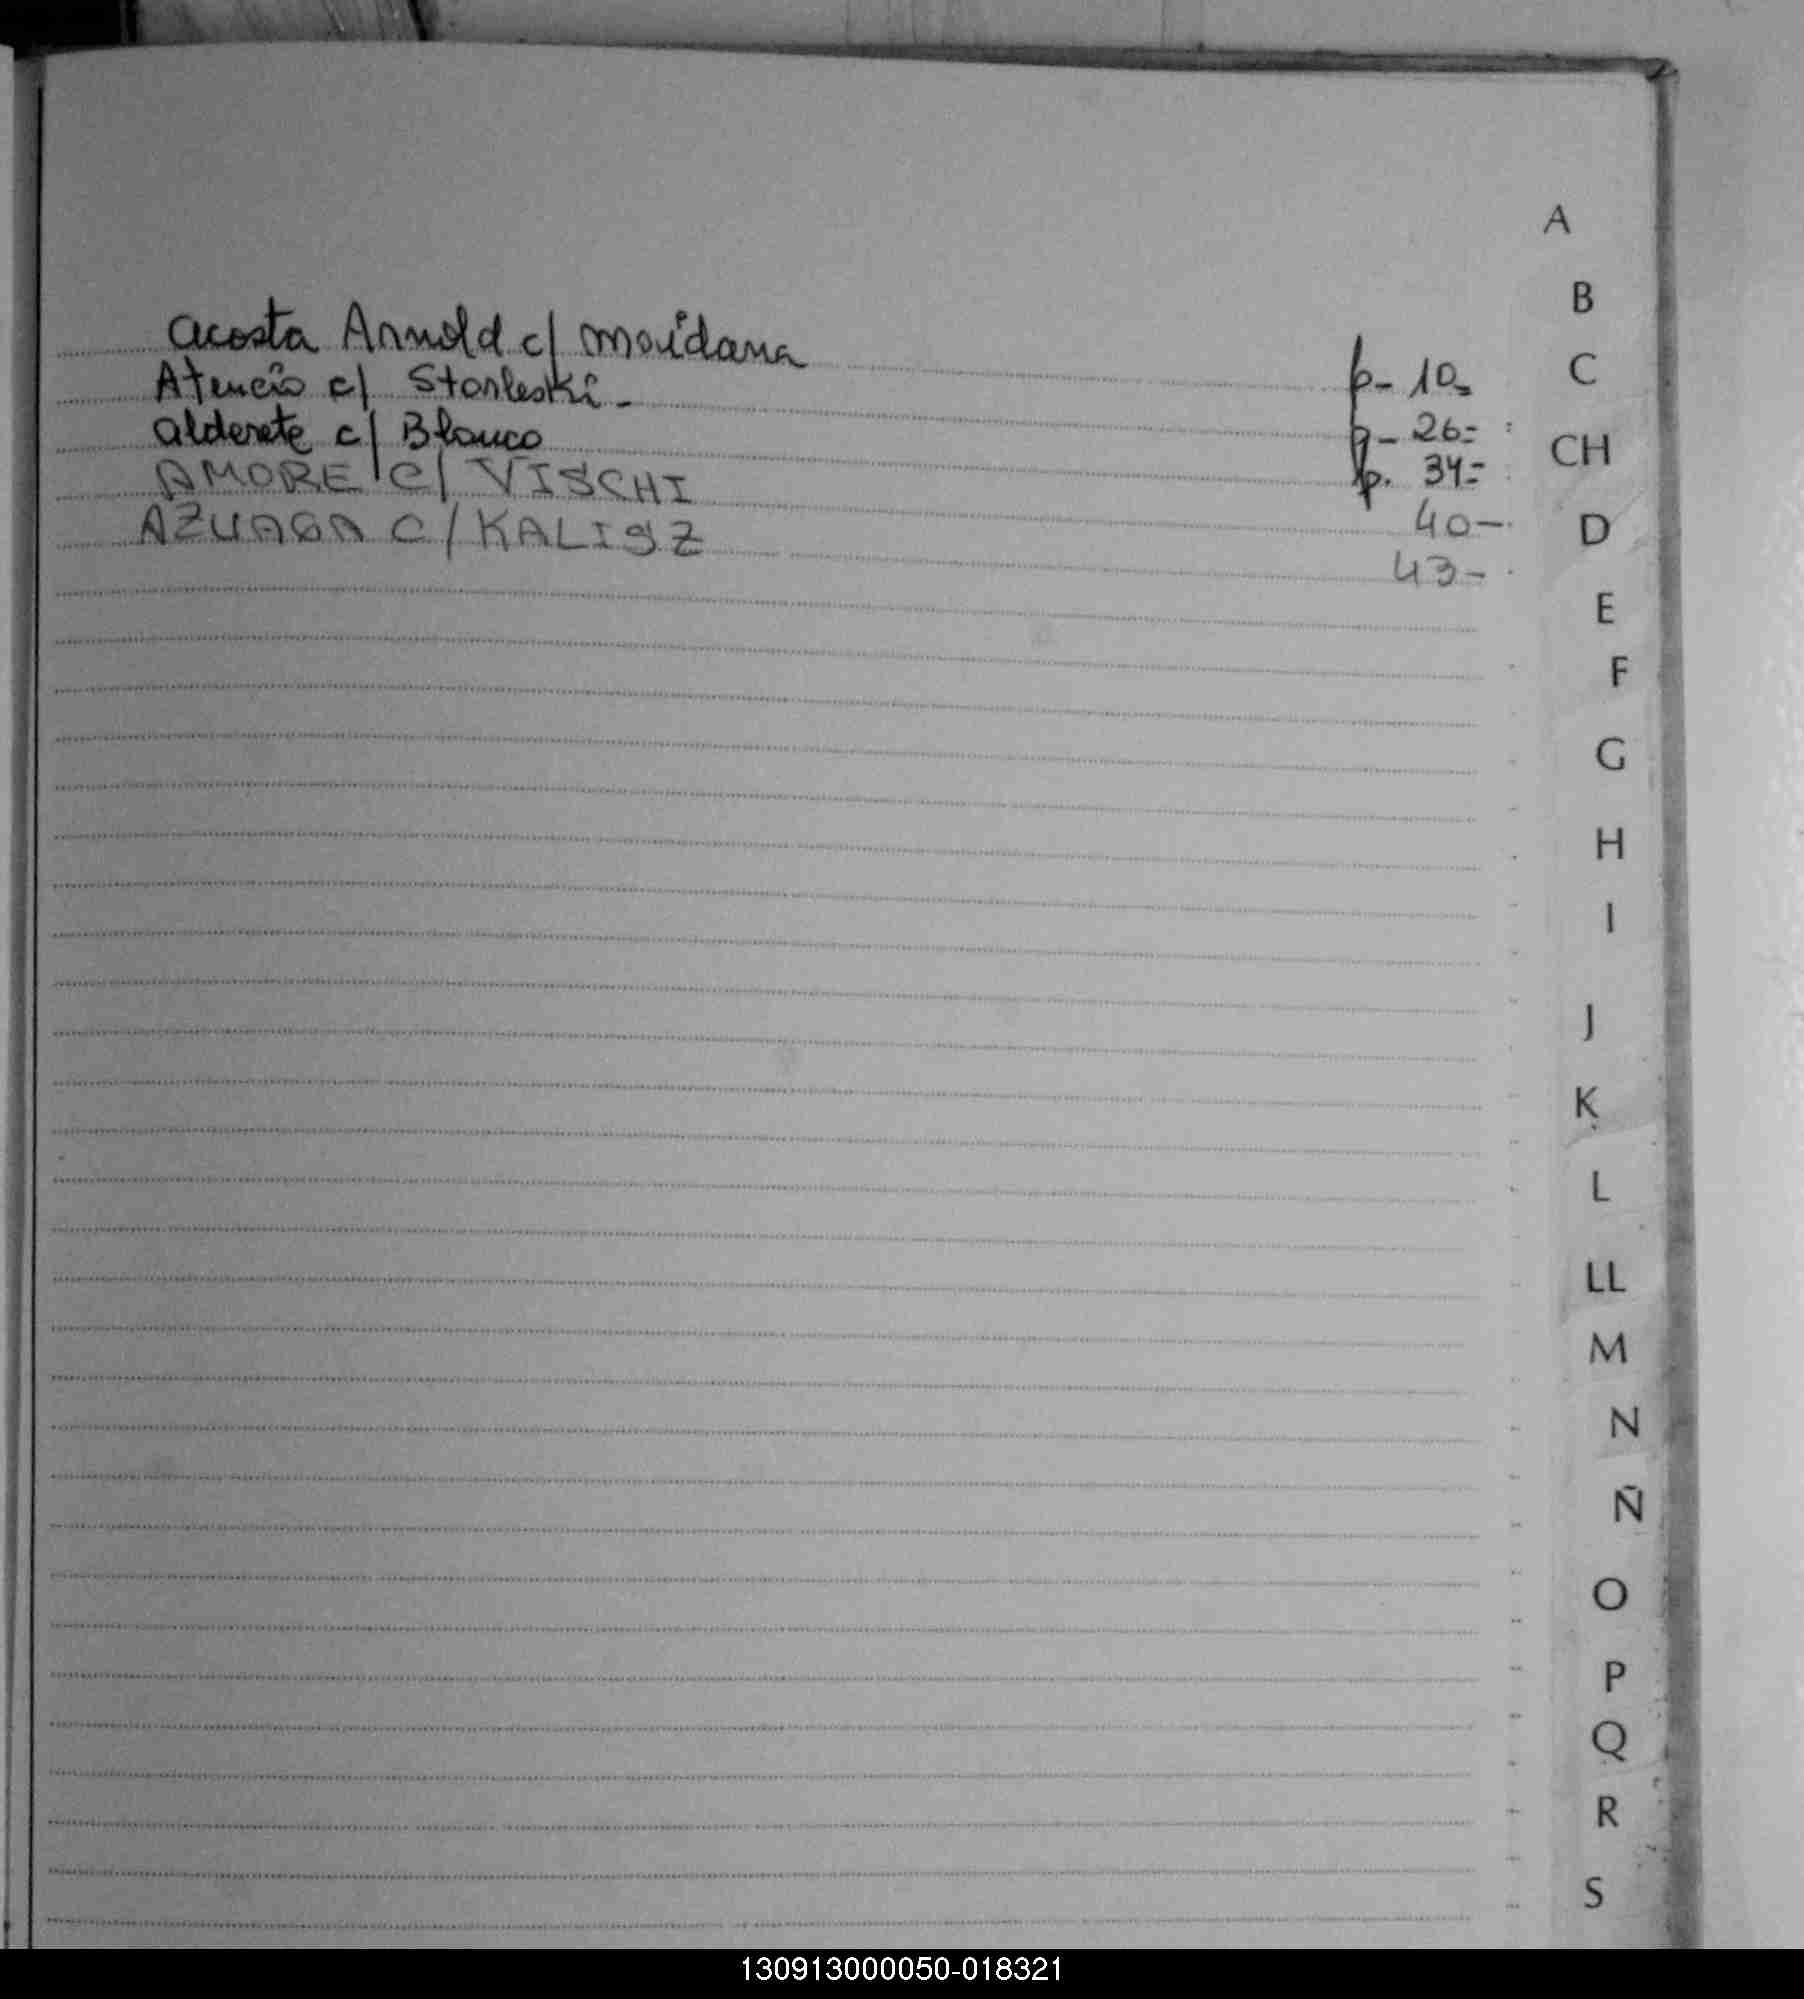 A
B
acosta Arnold c/ Moidana p- 10=
C
Atencio c/ Stonleski -
alderete c/ Blanco p- 26=
CH
AMORE c/ VISCHI p. 34=
AZUAGA C/KALISZ 40-
D
43-
E
F
G
H
I
J
K
L
LL
M
N
Ñ
O
P
Q
R
S
130913000050-018321